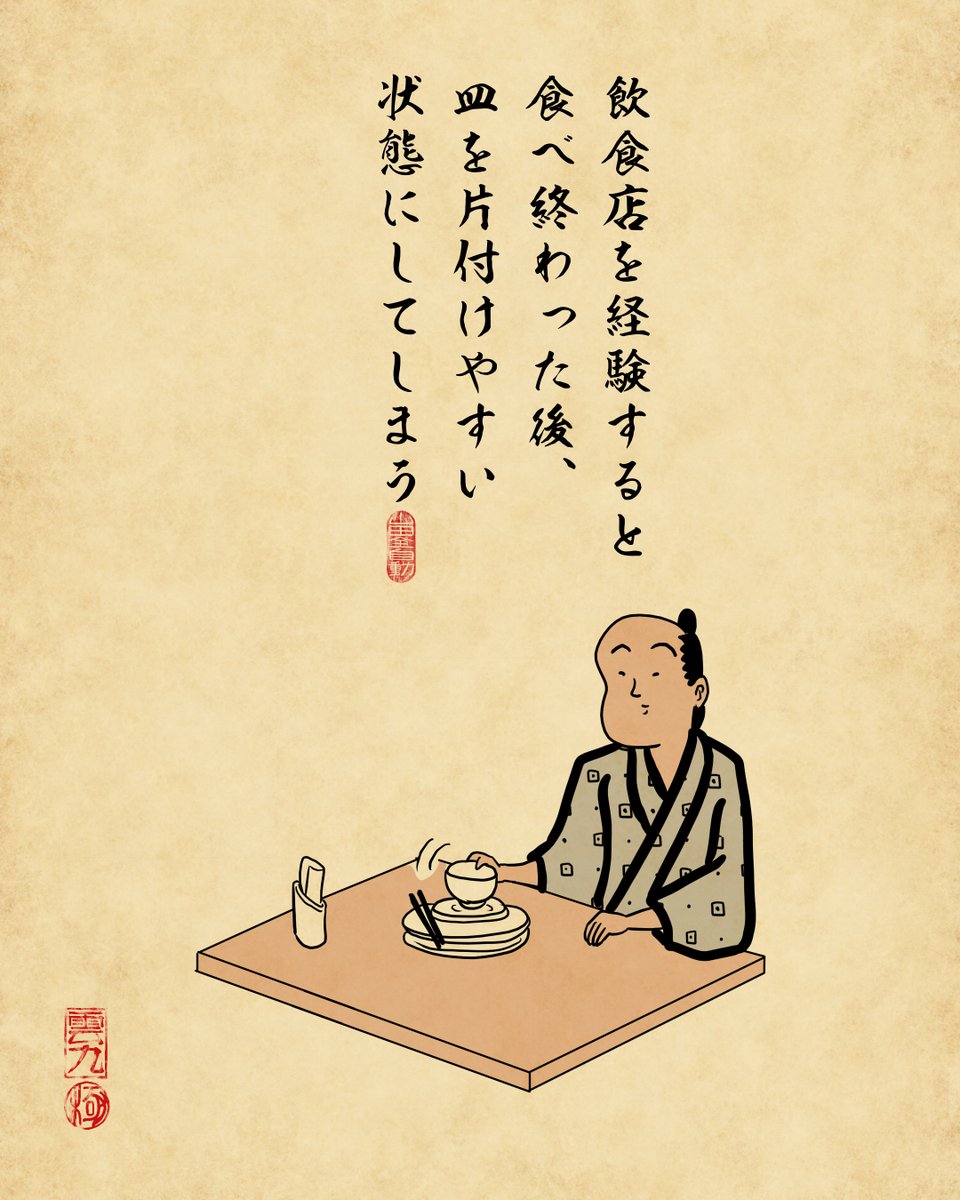 飲食店を経験すると
食べ終わった後、
皿を片付けやすい
状態にしてしまう